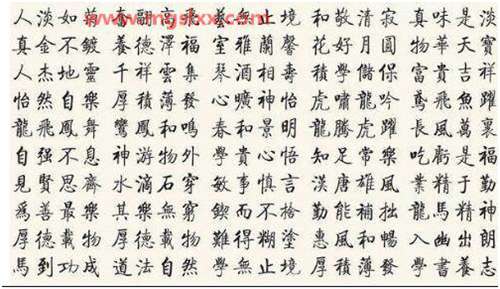 人淡如 飛 無止境 和敬清寂 真味是淡
真金不鍍 養德澤福 室雅蘭馨 花好月圓 物華天寶
人杰地靈 千祥雲集 琴酒相壽 積學儲保 富貴吉祥
怡然自樂 厚積薄發 心曠神怡 虎嘯龍吟 鳶飛魚躍
龍飛鳳舞 鸞鳳和鳴 春和景明 龍騰虎躍 長風萬裏
自强不息 神游物外 學貴心悟 知足常樂 吃虧是福
見賢思齊 水滴石穿 敏事慎言 漢唐雄風 業精于勤
爲善最樂 其樂無窮 鍥而不捨 勤能補拙 龍馬精神
厚德載物 厚德載物 難得糊塗 惠風和暢 入幽出朗
馬到功成 道法自然 學無止境 厚積薄發 學書養志